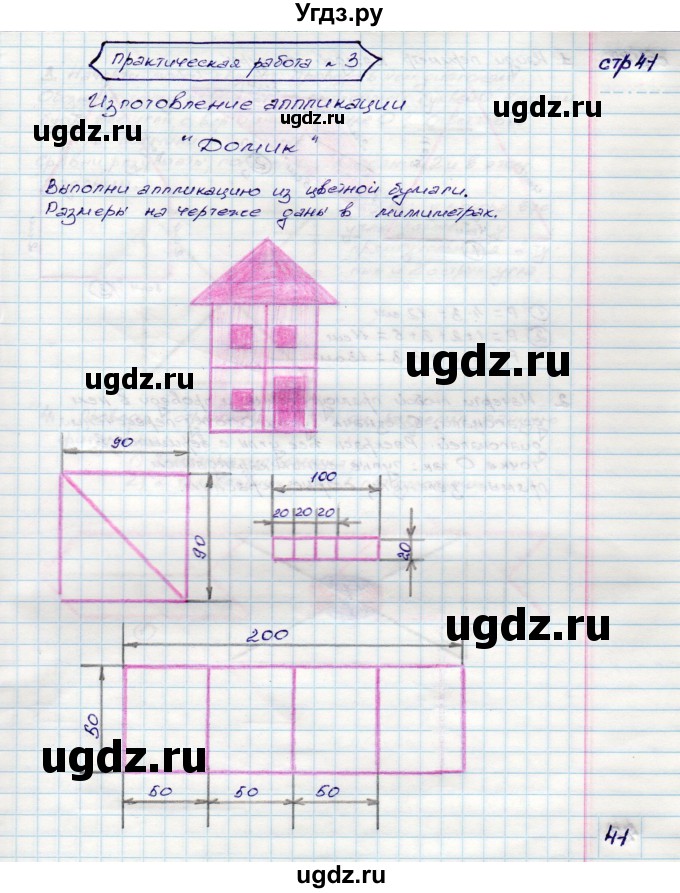 Угдз.ру
Практическая работа №3
стр41
Изготовление аппликации
ugdz.ru
ugdz.ru
"Домик"
Выполни аппликацию из цветной бумаги.
Размеры на чертеже даны в милиметрах.
ugdz.ru
ugdz.ru
90
100
20 20 20
90
20
ugdz.ru
ugdz.ru
200
50
ugdz.ru
50 50 50
41
ugdz.ru